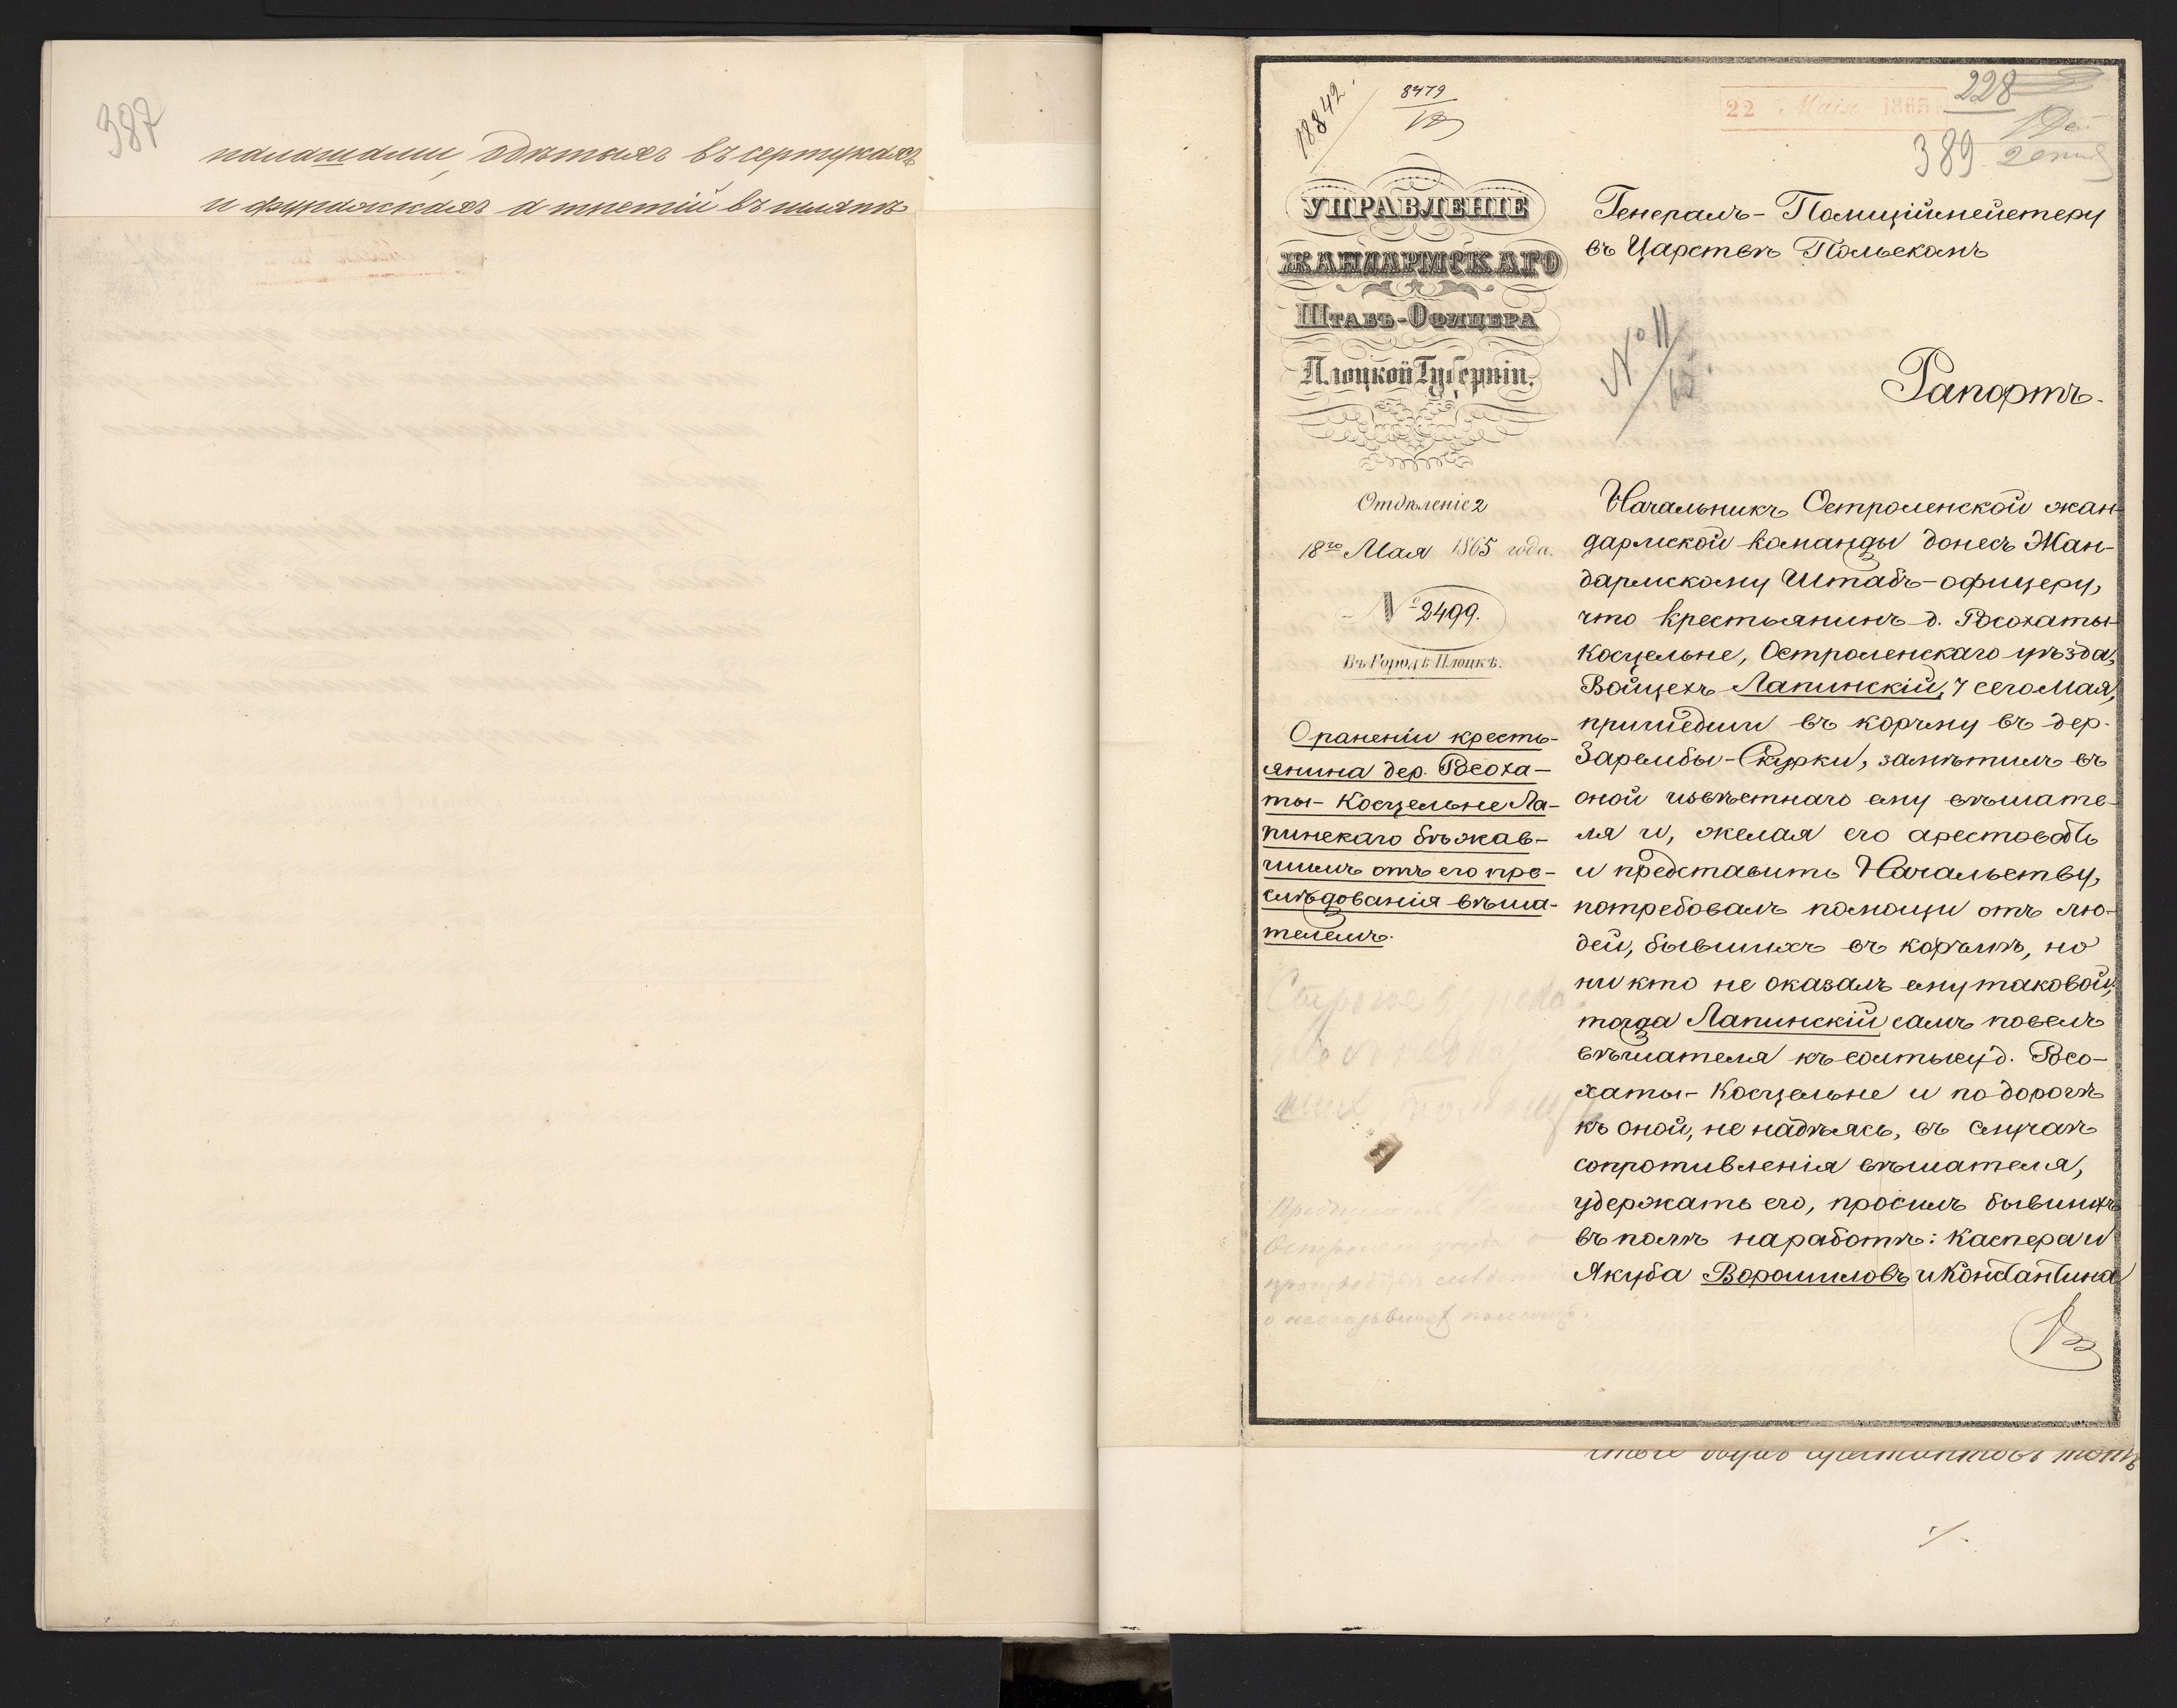 387
палашами, одѣтыхъ въ сертукахъ
и фуражкахъ а третій въ шляпѣ
18842.
8479
22 Мая 1865
228
389
УПРАВЛЕНІЕ
ЖАНДАРМСКАГО
ШТАБЪ-ОФИЦЕРА
Плоцкой Губерніи.
Отдѣленіе 2
18го Мая 1865 года.
№ 2499.
Въ Городѣ Плоцкѣ.
О раненіи кресть-
янина дер. Росоха-
ты-Косцельне Ла-
пинскаго бѣжав-
шимъ отъ его пре-
слѣдованія вѣша-
телемъ.
Генералъ-Полиціймейстеру
въ Царствѣ Польскомъ
№ 11
65.
Рапортъ.
Начальникъ Остроленской жан-
дармской команды донесъ Жан-
дармскому Штабъ-офицеру,
что крестьянинъ д. Росохаты-
Косцельне, Остроленскаго уѣзда,
Войцехъ Лапинскій, 7 сего Мая,
пришедши въ корчму въ дер.
Зарембы-Скурки, замѣтилъ въ
оной извѣстнаго ему вѣшате-
ля и, желая его арестовать
и представить Начальству,
потребовалъ помощи отъ лю-
дей, бывшихъ въ корчмѣ, но
ни кто не оказалъ ему таковой,
тогда Лапинскій самъ повелъ
вѣшателя къ солтысу д. Росо-
хаты-Косцельне и по дорогѣ
къ оной, не надѣясь, въ случаѣ
сопротивленія вѣшателя,
удержать его, просилъ бывшихъ
въ полѣ на работѣ: Каспера и
Якуба Ворошиловъ и Константина